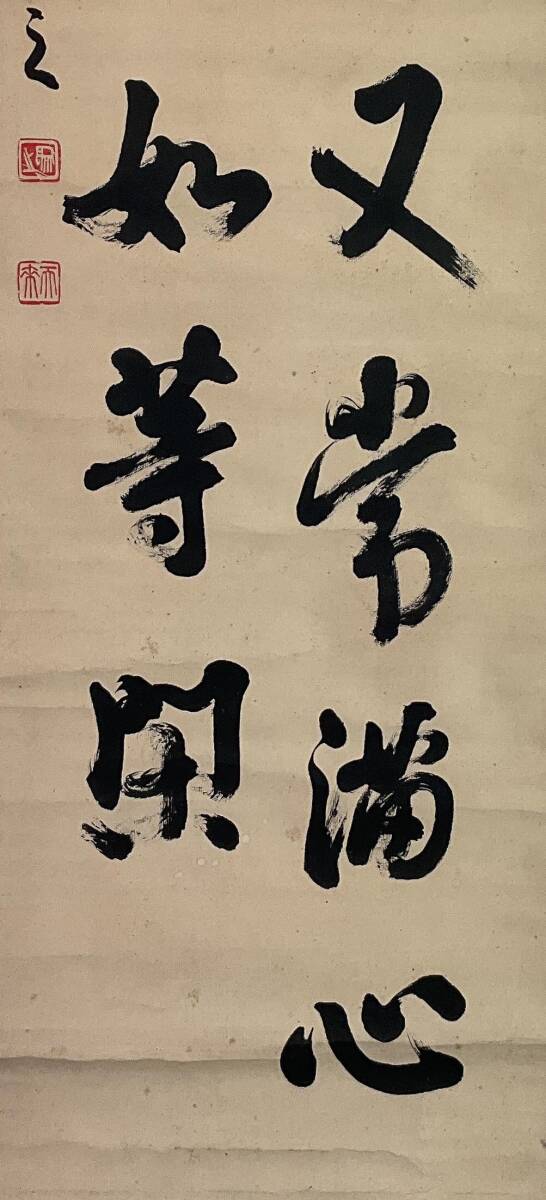 又常满心
如等閑
之